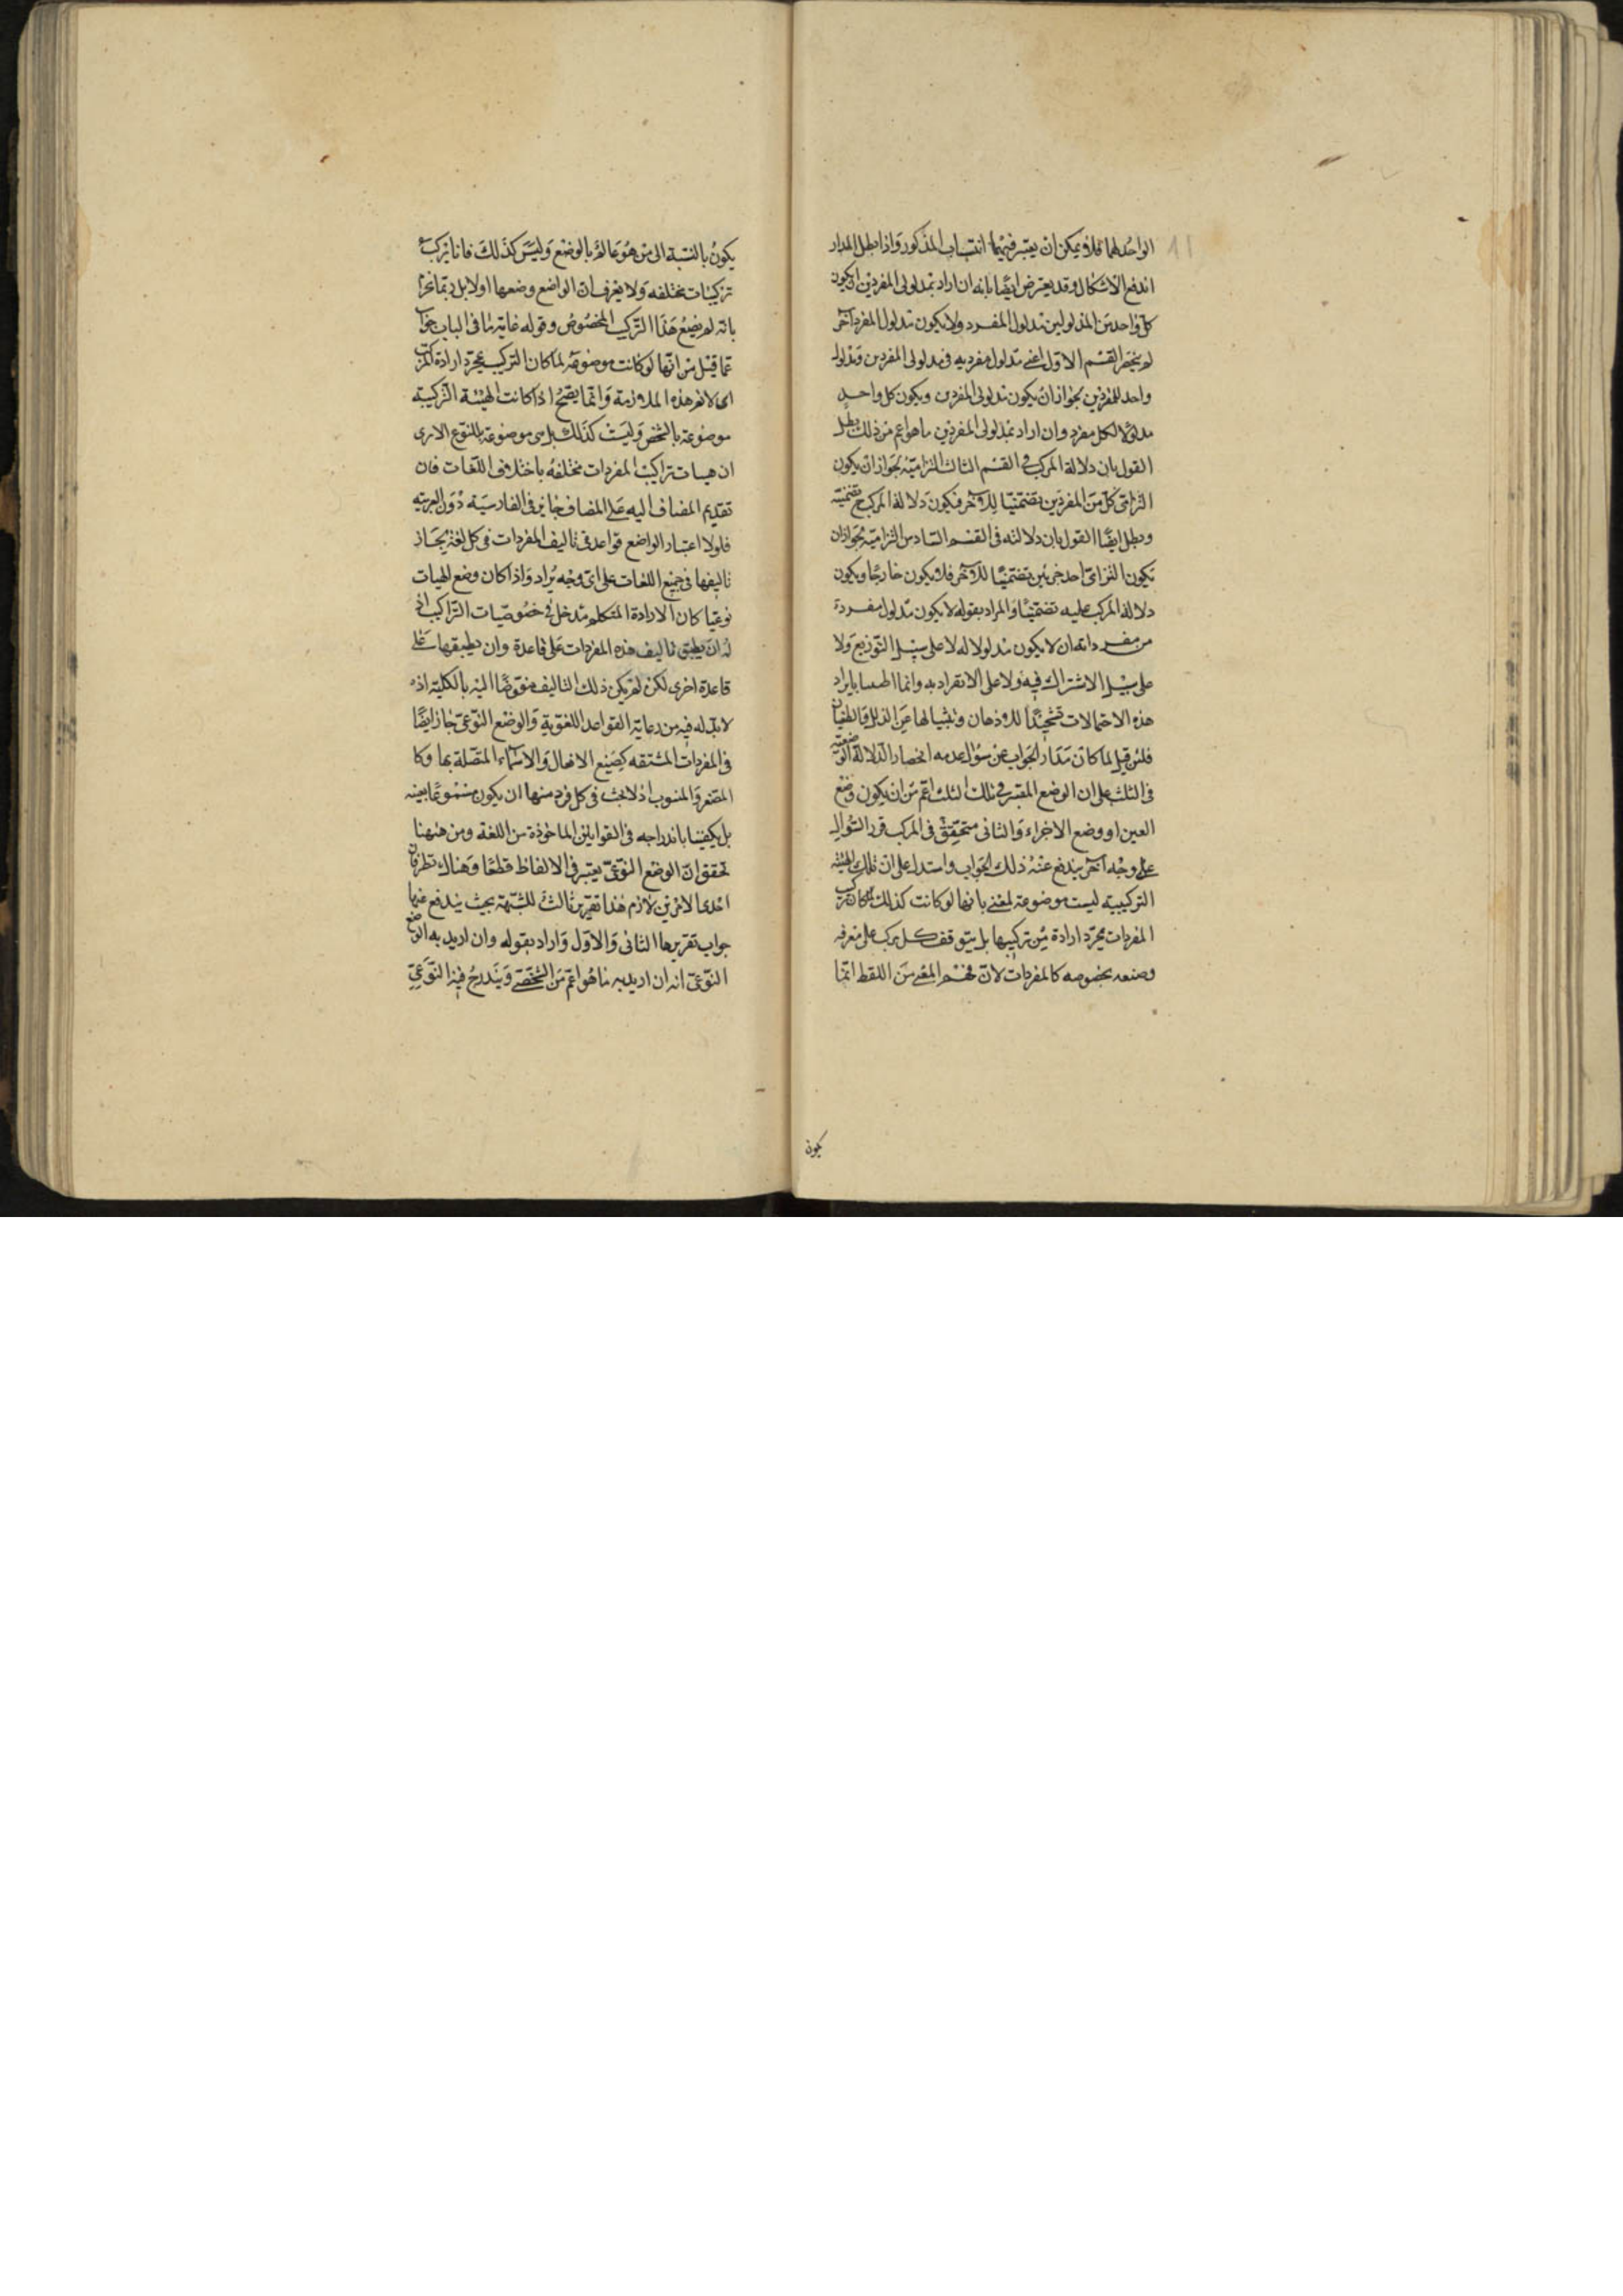 الواحد لهما فلا يمكن ان يعتبر فيهما انتساب المذكور واذا بطل المدار
اندفع الاشكال وقد يعترض ايضا بانه ان اراد بمدلولى المفردين ان يكون
كل واحد من المدلولين مدلول المفرد ولا يكون مدلول المفرد آخر
لم ينحصر القسم الاول اعنى مدلول مفرديه فى مدلولى المفردين ومدلول
واحد للمفردين بجواز ان يكون مدلولى المفردين ويكون كل واحد
مدلولا لكل مفرد وان اراد بمدلولى المفردين ما هو اعم من ذلك بطل
القول بان دلالة المركب فى القسم الثالث التزامية بجواز ان يكون
التزامى كل من المفردين تضمنيا للآخر فيكون دلالة المركب تضمنية
وبطل ايضا القول بان دلالته فى القسم السادس التزامية بجواز ان
يكون التزامى احد جزئين تضمنيا للآخر فلا يكون خارجا ويكون
دلالة المركب عليه تضمنيا والمراد بقوله لا يكون مدلول مفردة
من مفرداته ان لا يكون مدلولا له لا على سبيل التوزيع ولا
على سبيل الاشتراك فيه ولا على الانفراد به وانما بايراد
هذه الاحتمالات تشحيذا للاذهان
فلئن قيل لما كان مدار الجواب عن سؤال عدم انحصار الدلالة الوضعية
فى الثلث على ان الوضع المعتبر فى تلك الثلث اعم من ان يكون وضع
العين او وضع الاجزاء والثانى متحقق فى المركب قرر السؤال
على وجه آخر يندفع عنه ذلك الجواب واستدل على ان تلك الهيئة
التركيبية ليست موضوعة لمعنى بانها لو كانت كذلك لما كان تركيب
المفردات بمجرد ارادة من تركيبها بل يتوقف كل مركب على معرفة
وضعه بخصوصه كالمفردات لان فهم المعنى من اللفظ انما
يكون
يكون بالنسبة الى من هو عالم بالوضع وليس كذلك فانا نركب
تركيبات مختلفه ولا نعرف ان الواضع وضعها اولا بل ربما نجزم
بانه لم يضع هذا التركيب المخصوص وقوله غاية ما فى الباب جواب
عما قيل من انها لو كانت موضوعة لما كان التركيب بمجرد ارادة المركب
اى لا نم هذه الملازمة وانما يصح اذا كانت الهيئة التركيبية
موضوعة بالشخص وليست كذلك بل هى موضوعة بالنوع الا ترى
ان هيات تراكيب المفردات مختلفة باختلاف اللغات فان
تقديم المضاف اليه على المضاف جايز فى الفارسية دون العربيه
فلولا اعتبار الواضع قواعد فى تاليف المفردات فى كل لغة لجاز
تاليفها فى جميع اللغات على اى وجه يراد واذا كان وضع الهيات
نوعيا كان لارادة المتكلم مدخل فى خصوصيات التراكيب اذ
له ان يطبق تاليف هذه المفردات على قاعدة وان يطبقها على
قاعدة اخرى لكن لم يكن ذلك التاليف مفوضا اليه بالكلية اذ
لا بد له فيه من رعاية القواعد اللغوية والوضع النوعى جاز ايضا
فى المفردات المشتقه كصيغ الافعال والاسماء المتصلة بها وكا
المصغر والمنسوب اذ لا يجب فى كل فرد منها ان يكون مسموعا بعينه
بل يكفينا باندراجه فى القوانين الماخوذة من اللغة ومن ههنا
تحقق ان الوضع النوعى يعتبر فى الالفاظ قطعا وهناك نظر فان
احدى الامرين لازم هذا تقرير ثالث للشبهة بحيث يندفع عنها
جواب تقريرها الثانى والاول واراد بقوله وان اريد به الوضع
النوعى انه ان اريد به ما هو اعم من الشخصى ويندرج فيه النوعى